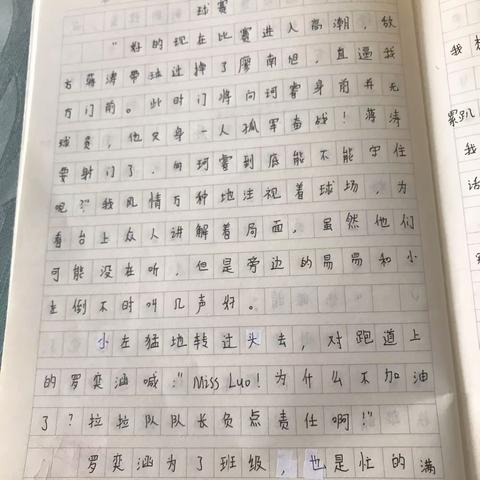 球赛
“好的现在比赛进入高潮，敌
方蒋涛带球过掉了廖南旭，直逼我
方门前。此时门将向珂霄身前并无
球员，他只身一人孤军奋战！蒋涛
要射门了，向珂霄到底能不能守住
呢？”我风情万种地注视着球场，为
看台上众人讲解着局面，虽然他们
可能没在听，但是旁边的易易和小
左倒不时叫几声好。
小左猛地转过头去，对跑道上
的罗奕涵喊：“Miss Luo！为什么不加油
了？拉拉队队长负点责任啊！”
罗奕涵为了班级，也是忙的满
我
累趴
我
话